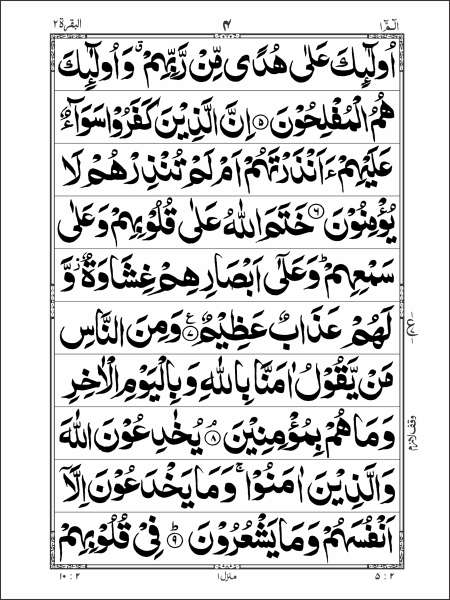 الٓمّٓ ١ ٤ البقرة ٢
اُولٰٓئِكَ عَلٰى هُدًى مِّنْ رَّبِّهِمْ ۙ وَاُولٰٓئِكَ
هُمُ الْمُفْلِحُوْنَ ۝٥ اِنَّ الَّذِيْنَ كَفَرُوْا سَوَآءٌ
عَلَيْهِمْ ءَاَنْذَرْتَهُمْ اَمْ لَمْ تُنْذِرْهُمْ لَا
يُؤْمِنُوْنَ ۝٦ خَتَمَ اللّٰهُ عَلٰى قُلُوْبِهِمْ وَعَلٰى
سَمْعِهِمْ ؕ وَعَلٰٓى اَبْصَارِهِمْ غِشَاوَةٌ ؗ وَّ
لَهُمْ عَذَابٌ عَظِيْمٌ ۝٧ ع وَمِنَ النَّاسِ
مَنْ يَّقُوْلُ اٰمَنَّا بِاللّٰهِ وَبِالْيَوْمِ الْاٰخِرِ
وَمَا هُمْ بِمُؤْمِنِيْنَ ۝٨ يُخٰدِعُوْنَ اللّٰهَ
وقف لازم
وَالَّذِيْنَ اٰمَنُوْا ۚ وَمَا يَخْدَعُوْنَ اِلَّاۤ
اَنْفُسَهُمْ وَمَا يَشْعُرُوْنَ ۝٩ؕ فِيْ قُلُوْبِهِمْ
٥ : ٢ منزل ١ ١٠ : ٢